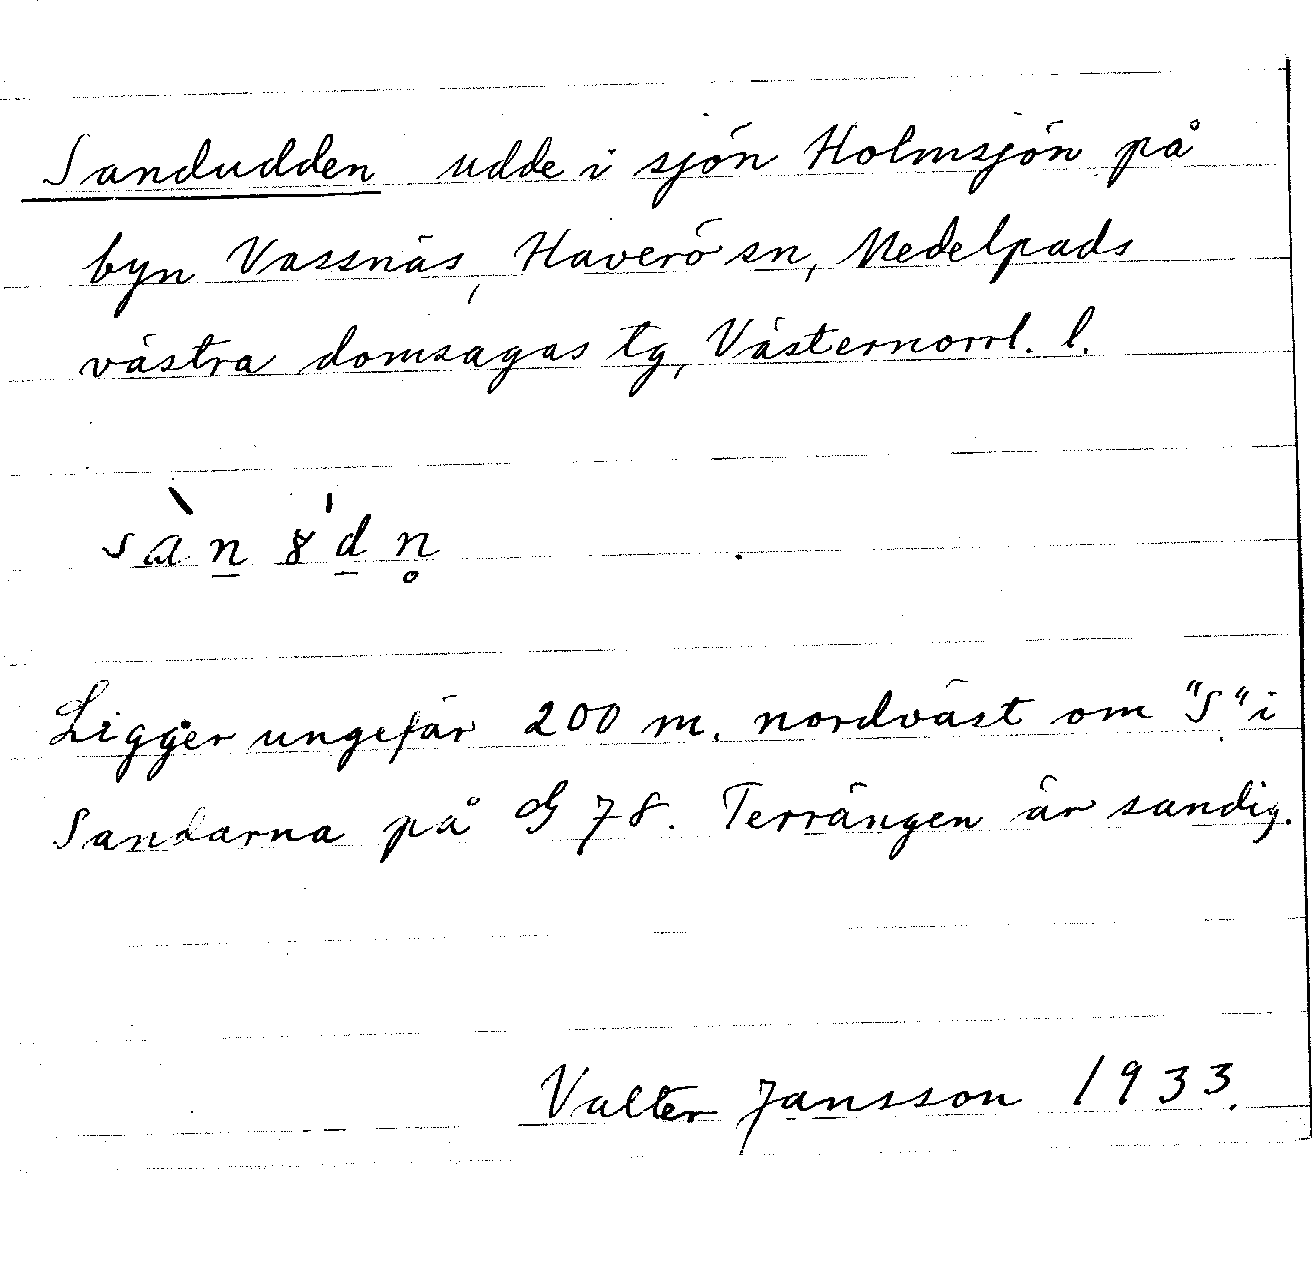 Sandudden udde i sjön Holmsjön på
byn Vassnäs, Haverö sn, Medelpads
västra domsagas tg, Västernorrl. l.
sàn 8'dn̥
Ligger ungefär 200 m. nordväst om "S" i
Sandarna på G 78. Terrängen är sandig.
Valter Jansson 1933.